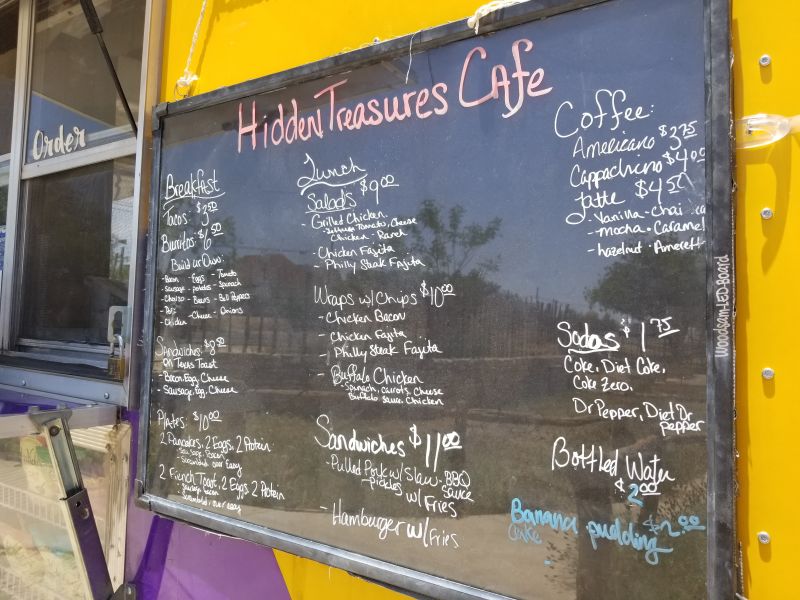 Order
Hidden Treasures Cafe
Breakfast
Tacos: $3.50
Burritos: $6.50
Build ur Own:
- Bacon - Eggs - Tomato
- Sausage - potatoes - Spinach
- Chorizo - Beans - Bell Peppers
- Cheese - Onions
- Chicken
Sandwiches: $8.50
on Texas Toast
- Bacon, Egg, Cheese
- Sausage, Egg, Cheese
Plates: $10.00
2 Pancakes, 2 Eggs, 2 Protein
- Sausage, Bacon
- Scrambled, over Easy
2 French Toast, 2 Eggs, 2 Protein
- Sausage, bacon
- Scrambled, over easy
Lunch
Salads $9.00
- Grilled Chicken
- Lettuce Tomato, Cheese
Chicken - Ranch
- Chicken Fajita
- Philly Steak Fajita
Wraps w/ Chips $10.00
- Chicken Bacon
- Chicken Fajita
- Philly Steak Fajita
- Buffalo Chicken
Spinach, carrots, Cheese
Buffalo Sauce, Chicken
Sandwiches $11.00
- Pulled Pork w/ Slaw, BBQ
pickles Sauce
w/ Fries
- Hamburger w/ Fries
Coffee:
Americano $3.75
Cappachino $4.00
Latte $4.50
- Vanilla - Chai
- mocha - Caramel
- hazelnut - Amerett
Sodas $1.75
Coke, Diet Coke,
Coke Zero,
Dr Pepper, Diet Dr
pepper
Bottled Water
$2.00
Banana pudding $2.00
Cake
Woodsam-LED-Board